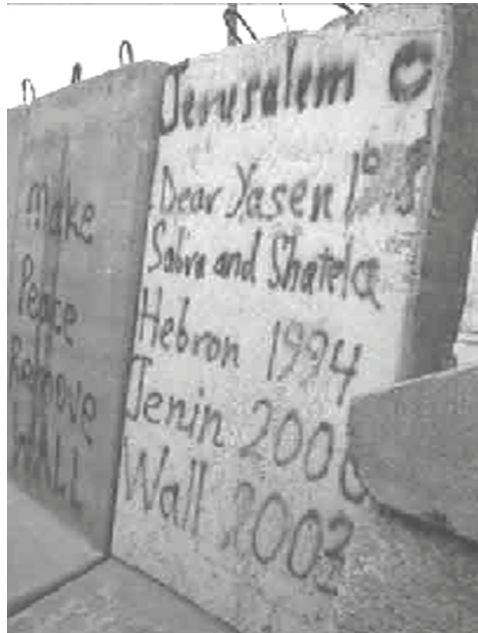 make
Peace
Remove
WALL
Jerusalem
Dear Yasen
Sabra and Shatela
Hebron 1994
Jenin
Wall